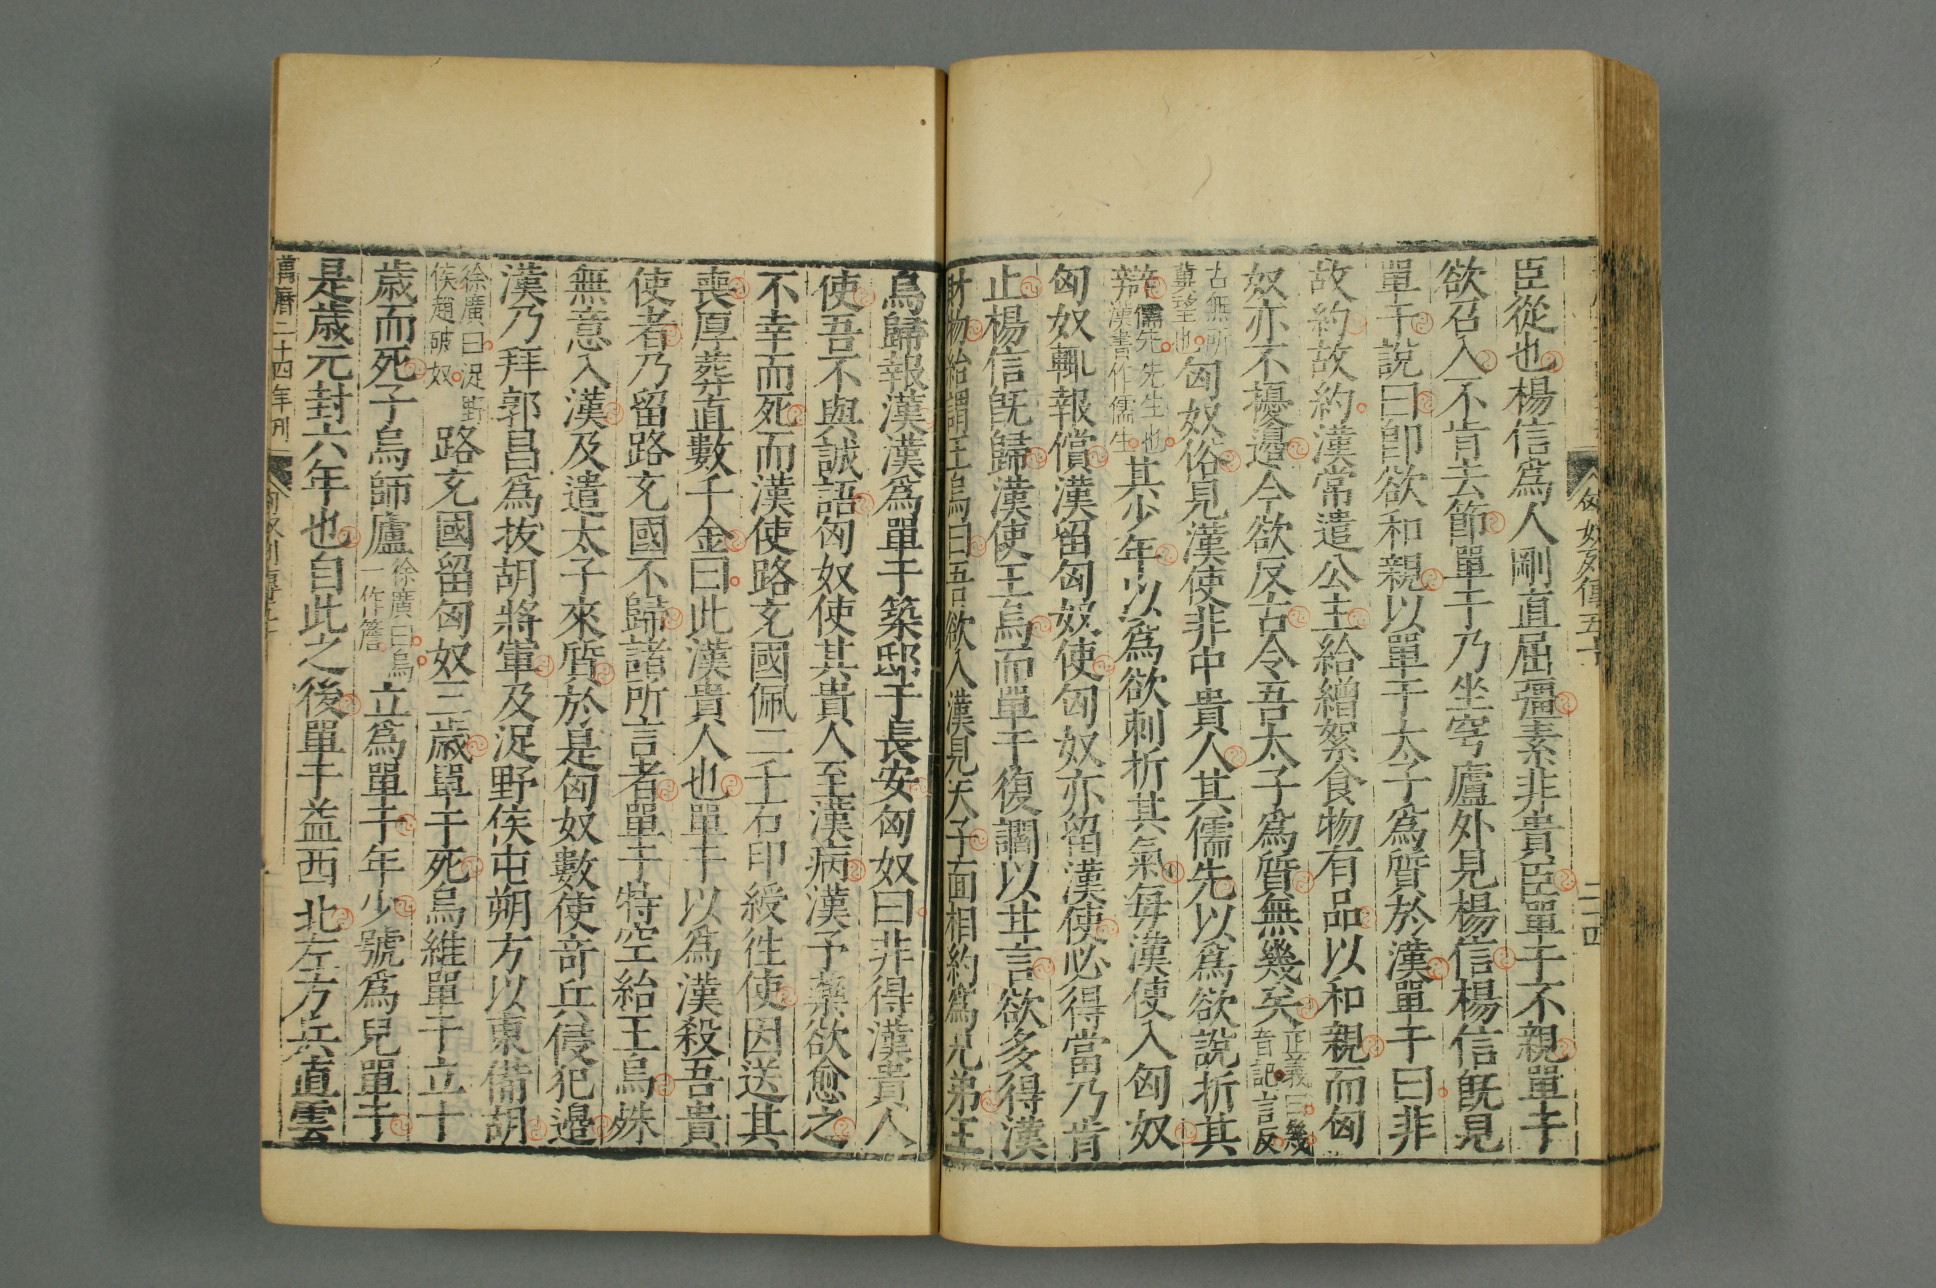 匈奴列傳五十
二十四
臣從也楊信爲人剛直屈彊素非貴臣單于不親單于
欲召入不肯去節單于乃坐穹廬外見楊信楊信既見
單于說曰卽欲和親以單于太子爲質於漢單于曰非
故約故約漢常遣公主給繒絮食物有品以和親而匈
奴亦不擾邊今欲反古令吾太子爲質無幾矣正義曰幾
音記言反
古無所
冀望也匈奴俗見漢使非中貴人其儒先以爲欲說折其
辯儒先先生也
辨漢書作儒生其少年以爲欲刺折其氣每漢使入匈奴
匈奴輒報償漢留匈奴使匈奴亦留漢使必得當乃肯
止楊信既歸漢使王烏而單于復讇以甘言欲多得漢
財物紿謂王烏曰吾欲入漢見天子面相約爲兄弟王
烏歸報漢漢爲單于築邸于長安匈奴曰非得漢貴人
使吾不與誠語匈奴使其貴人至漢病漢予藥欲愈之
不幸而死而漢使路充國佩二千石印綬徃使因送其
喪厚葬直數千金曰此漢貴人也單于以爲漢殺吾貴
使者乃留路充國不歸諸所言者單于特空紿王烏殊
無意入漢及遣太子來質於是匈奴數使奇兵侵犯邊
漢乃拜郭昌爲拔胡將軍及浞野侯屯朔方以東備胡
徐廣曰浞野
侯趙破奴路充國留匈奴三歲單于死烏維單于立十
歲而死子烏師廬徐廣曰烏
一作詹立爲單于年少號爲兒單于
是歲元封六年也自此之後單于益西北左方兵直雲
萬曆二十四年刊